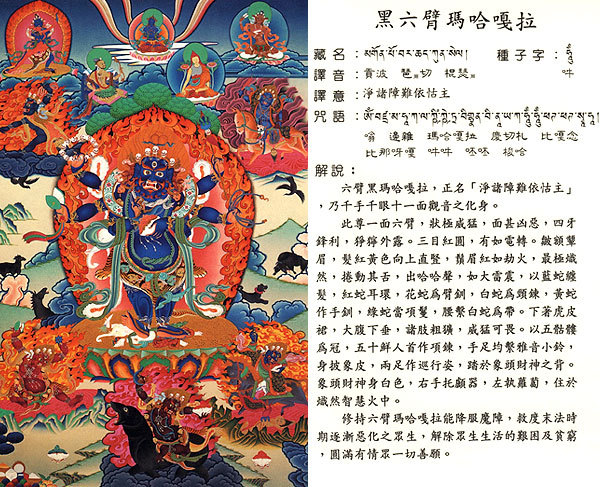 黑六臂瑪哈嘎拉
藏名：མགོན་པོ་བར་ཆད་ཀུན་སེལ། 種子字：ཧཱུྃ
譯音：貢波 琶 切 棍瑟 吽
譯意：淨諸障難依怙主
咒語：
嗡 邊雜 瑪哈嘎拉 慶切札 比嘎念
比那呀嘎 吽吽 呸呸 梭哈
解說：
六臂黑瑪哈嘎拉，正名「淨諸障難依怙主」
，乃千手千眼十一面觀音之化身。
此尊一面六臂，狀極威猛，面甚凶惡，四牙
鋒利，猙獰外露。三目紅圓，有如電轉。皺額顰
眉，髮紅黃色向上直豎，鬚眉紅如劫火，最極熾
然，捲動其舌，出哈哈聲，如大雷震，以藍蛇纏
髮，紅蛇耳環，花蛇為臂釧，白蛇為頸鍊，黃蛇
作手釧，綠蛇當項鬘，腰繫白蛇為帶。下著虎皮
裙，大腹下垂，諸肢粗獷，威猛可畏。以五骷髏
為冠，五十鮮人首作項鍊，手足均繫雅音小鈴，
身披象皮，兩足作巡行姿，踏於象頭財神之背。
象頭財神身白色，右手托顱器，左執蘿蔔，住於
熾然智慧火中。
修持六臂瑪哈嘎拉能降服魔障，救度末法時
期逐漸惡化之眾生，解除眾生生活的艱困及貧窮
，圓滿有情眾一切善願。